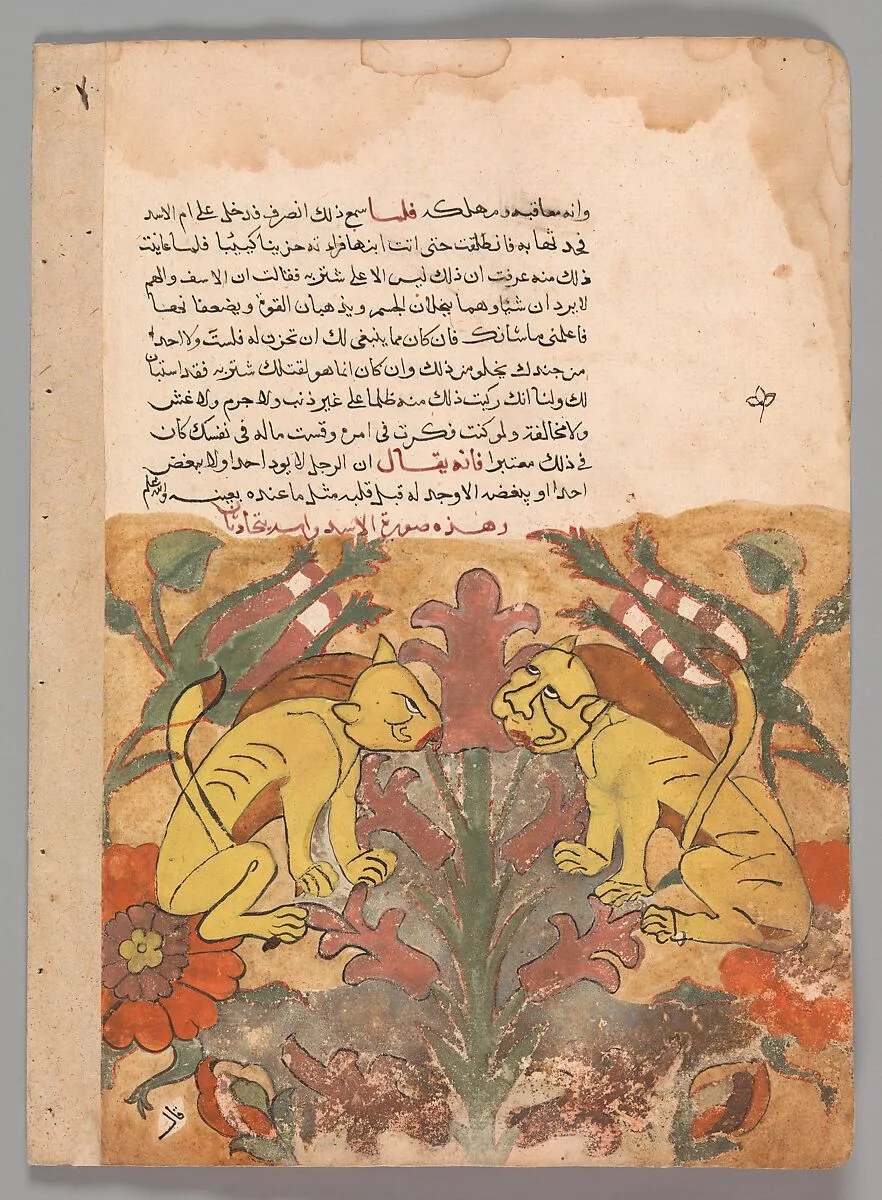 وانه معاقبه ومهلكه فلما سمع ذلك انصرف فدخل على ام الاسد
فحدثها به فانطلقت حتى اتت ابنها فراته حزينا كييبا فلما عاينت
ذلك منه عرفت ان ذلك ليس الا على شتربه فقالت ان الاسف والهم
لا يردان شيا وهما ينحلان الجسم ويذهبان القوة ويضعفانها
فاعلمنى ما شانك فان كان مما ينبغى لك ان تحزن له فلست ولا احدا
من جندك يخلو من ذلك وان كان انما هو لقتلك شتربه فقد استبان
لك ولنا انك ركبت ذلك منه ظلما على غير ذنب ولا جرم ولا غش
ولا مخالفة ولو كنت فكرت فى امره وقست ماله فى نفسك كان
فى ذلك معتبرا فانه يقال ان الرجل لا يود احدا ولا يبغض
احدا او يبغضه الا وجد له قبل قلبه مثل ما عنده بعينه والله اعلم
وهذه صورة الاسد واسد يتحادثان
قال